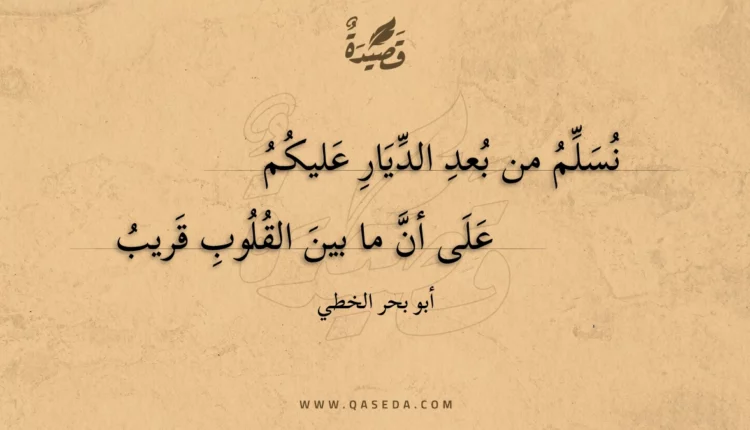 قَصِيدَةٌ
نُسَلِّمُ من بُعدِ الدِّيَارِ عَليكُمُ
عَلَى أنَّ ما بينَ القُلُوبِ قَريبُ
أبو بحر الخطي
WWW.QASEDA.COM